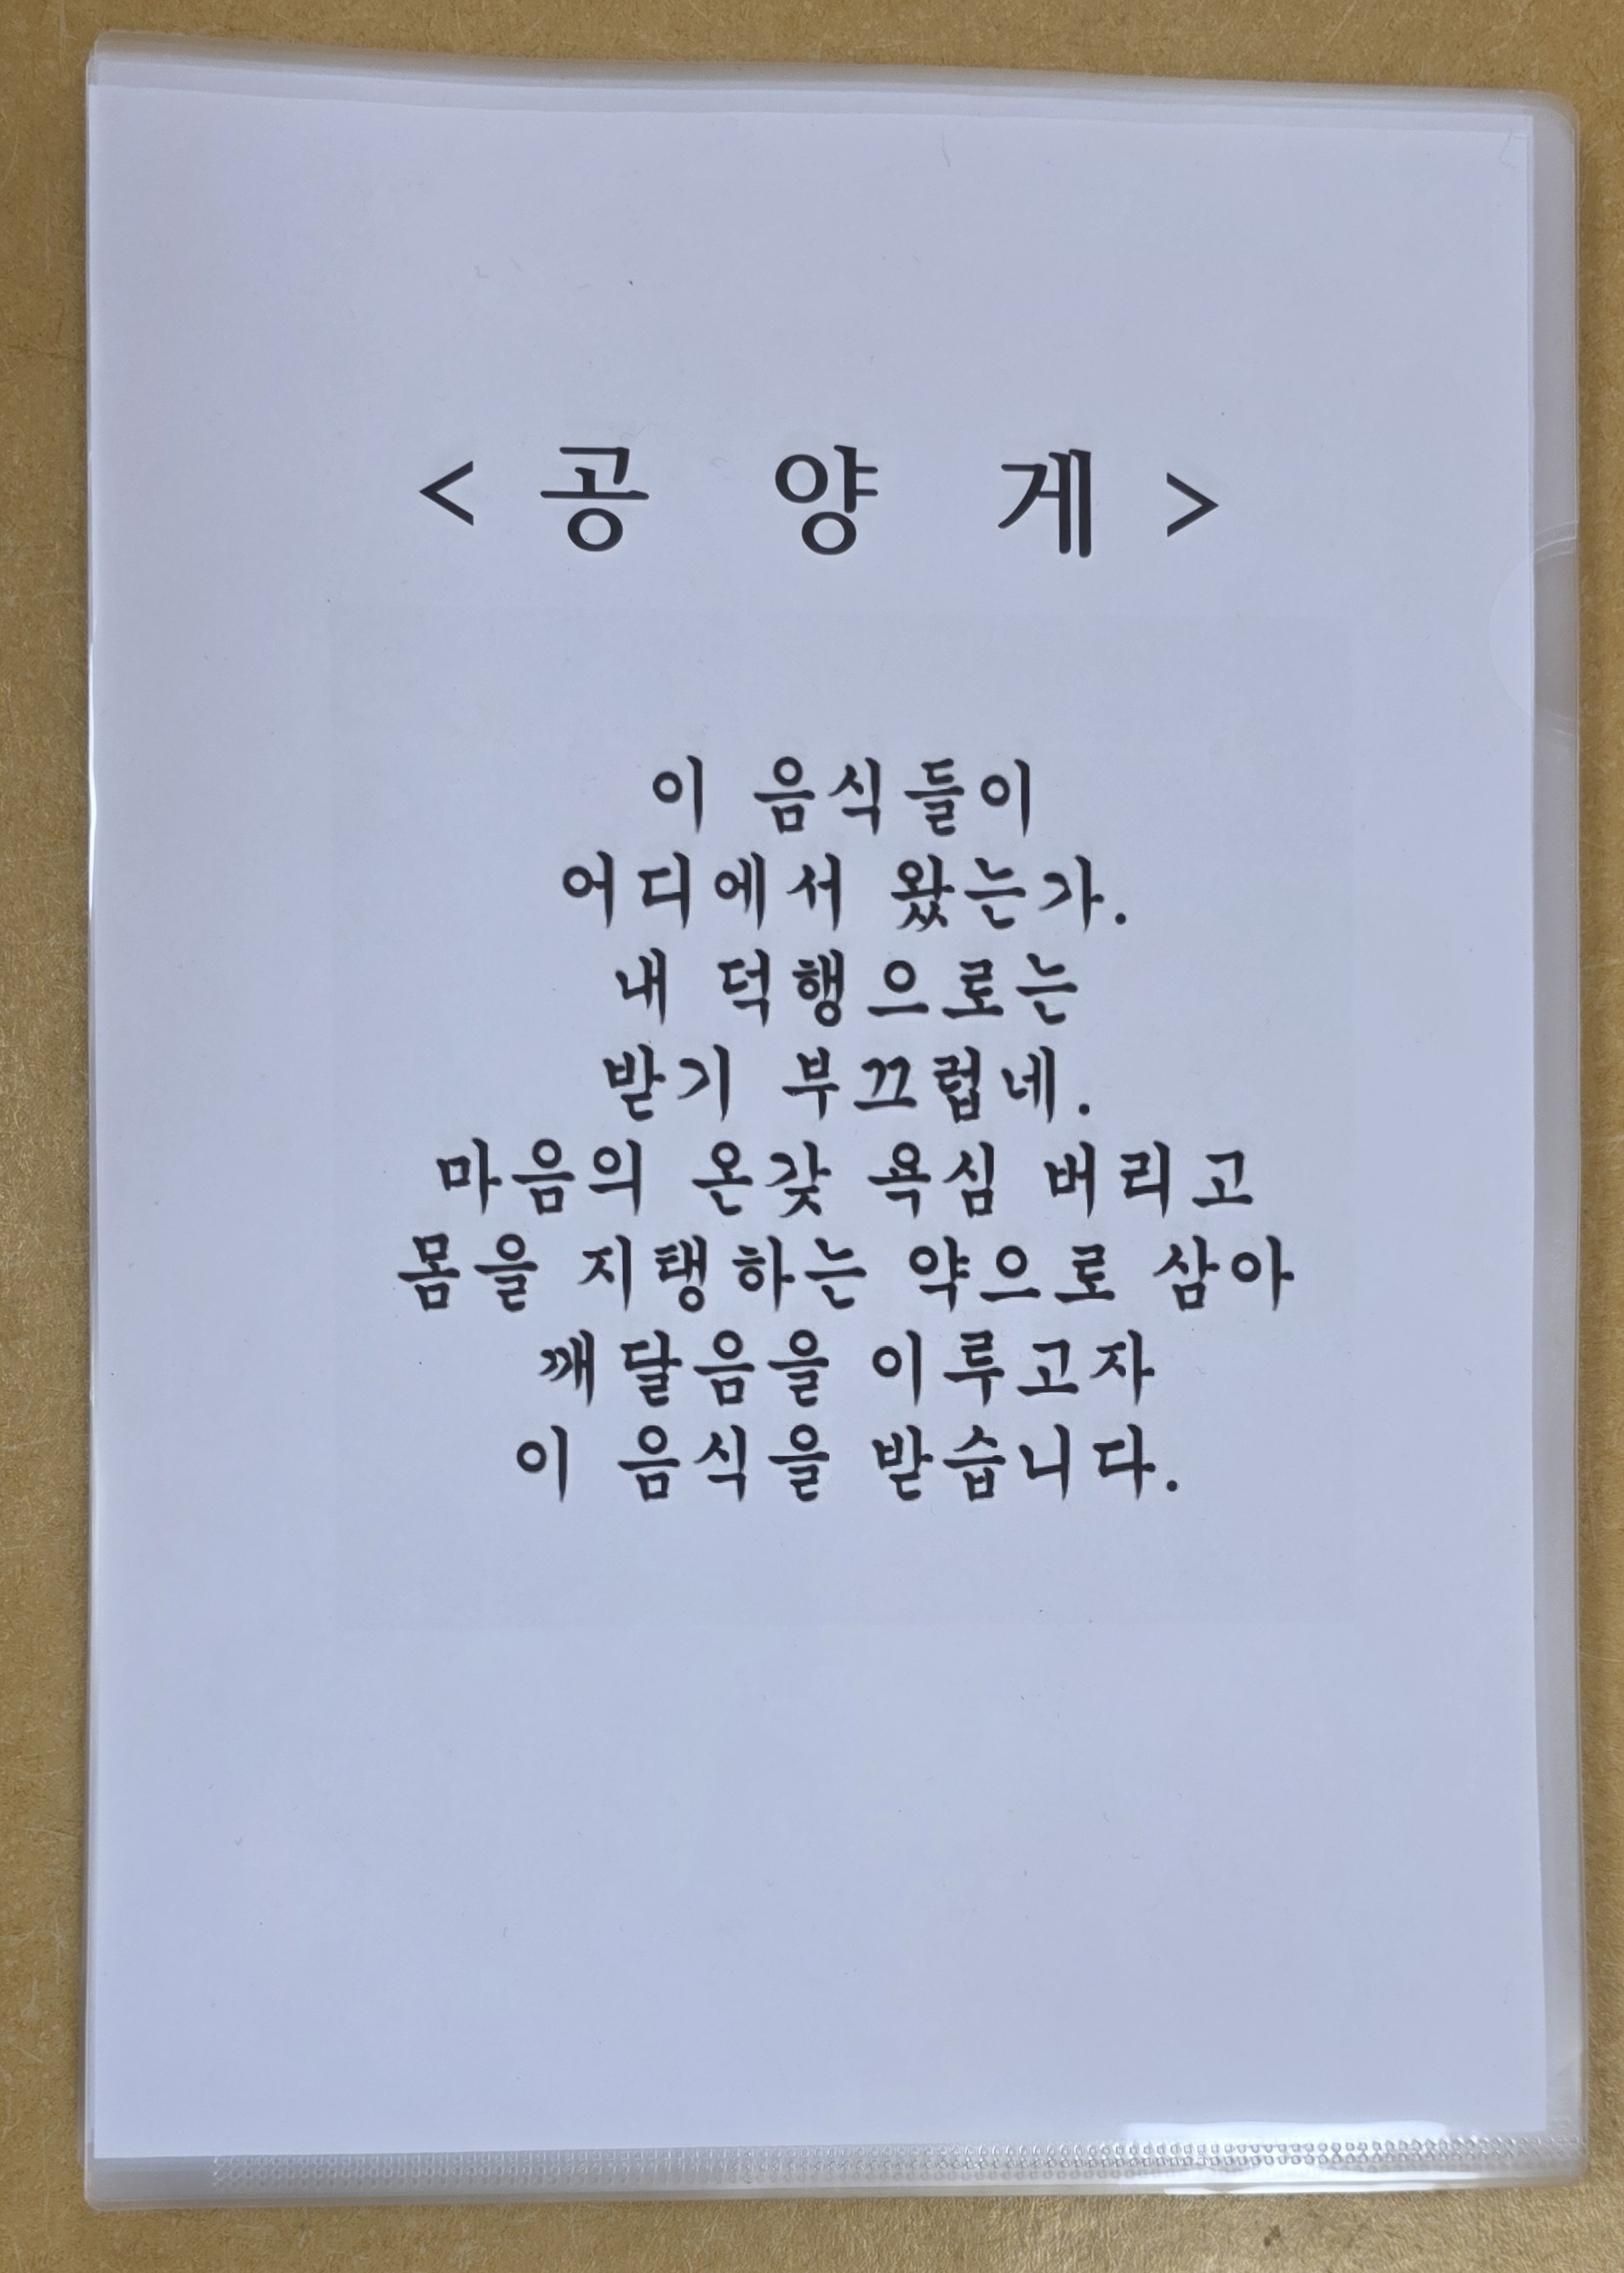 < 공 양 게 >
이 음식들이
어디에서 왔는가.
내 덕행으로는
받기 부끄럽네.
마음의 온갖 욕심 버리고
몸을 지탱하는 약으로 삼아
깨달음을 이루고자
이 음식을 받습니다.